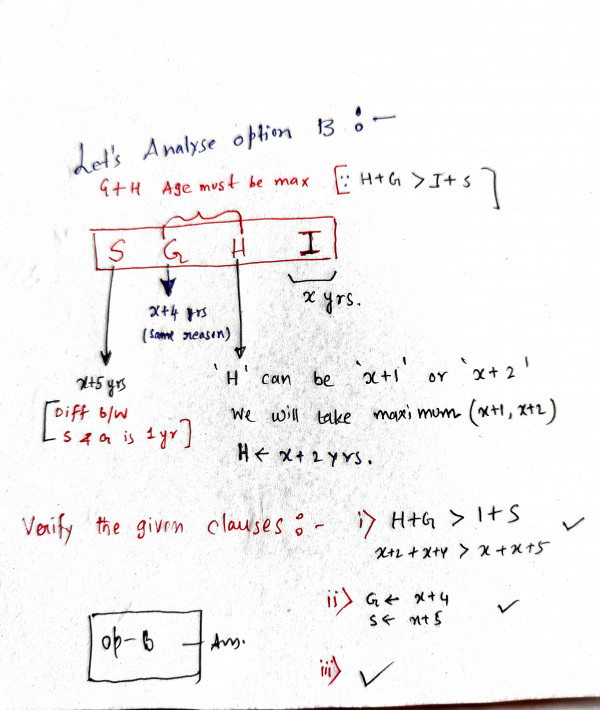 Let's Analyse option B :-
G+H Age must be max [∵ H+G > I+S]
S G H I
x+4 yrs
(same reason)
x yrs.
x+5 yrs
[Diff b/w
S & G is 1yr]
'H' can be 'x+1' or 'x+2'
We will take maximum (x+1, x+2)
H ← x+2 yrs.
Verify the given clauses :- i) H+G > I+S ✓
x+2+x+4 > x+x+5
ii) G ← x+4 ✓
S ← x+5
op-B - Ans.
iii) ✓